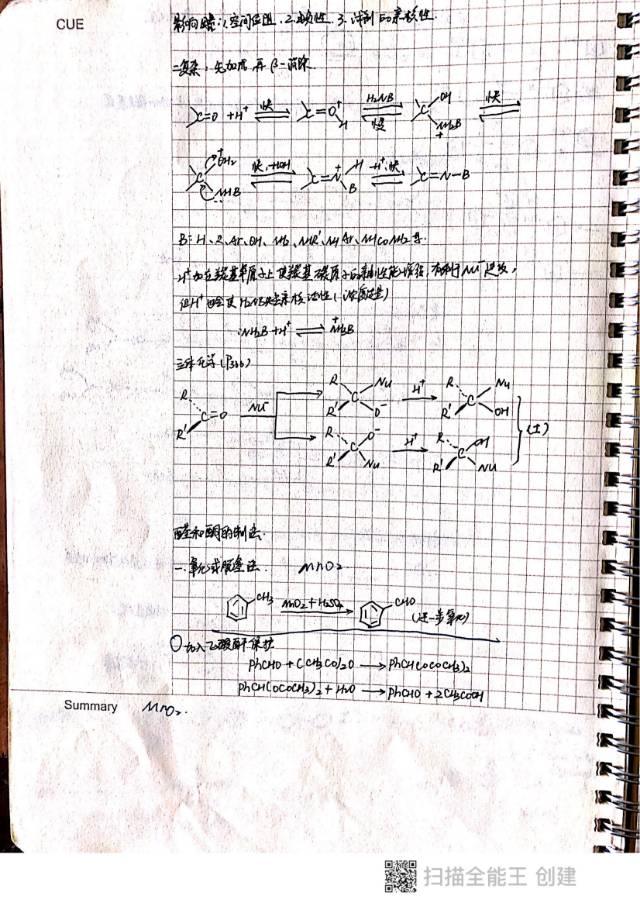 CUE
影响因素:1.空间位阻. 2.碱性 3.试剂的亲核性.
二.复杂:先加成再β-消除.
C=O + H⁺ 快 C=O⁺H H₂NB 慢 C OH NH₂B⁺ 快
C ⁺OH₂ NHB 快,-HOH C=N⁺ H B -H⁺,快 C=N-B
B=H、R、Ar、OH、NH₂、NHR'、NHAr、NHCONH₂等.
H⁺加在羰基氧原子上使羰基碳原子的亲电性能增强,有利于Nu⁻进攻,
但H⁺也会使H₂NB失去亲核活性(浓度过量)
:NH₂B + H⁺ ⇌ ⁺NH₃B
立体化学(P366)
R R' C=O Nu⁻ R R' C Nu O⁻ H⁺ R R' C Nu OH
R R' C O⁻ Nu H⁺ R R' C OH Nu (±)
醛和酮的制法.
一.氧化或脱氢法. MnO₂
CH₃ MnO₂+H₂SO₄ CHO (进一步氧化)
加入乙酸酐保护
PhCHO + (CH₃CO)₂O → PhCH(OCOCH₃)₂
PhCH(OCOCH₃)₂ + H₂O → PhCHO + 2CH₃COOH
Summary MnO₂.
扫描全能王 创建